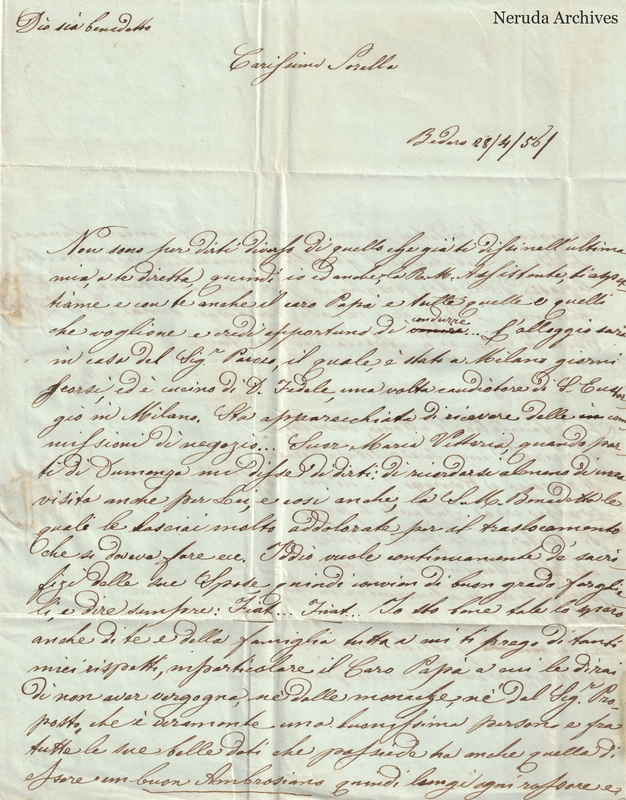 Neruda Archives
Dio sia benedetto
Carissima Sorella
Bedero 28/4/56/
Non sono per dirti diverso di quello che già ti dissi nell'ultima
mia, a te diretta, quindi io ed anche la R. M. Assistente, ti aspet
tiamo e con te anche il caro Papà e tutte quelle e quelli
che vogliono e credi opportuno di condurre... L'alloggio sarà
in casa del Sig.r il quale, è stato a Milano giorni
scorsi, ed è vicino di D. Fedele, una volta coadiutore di S. Eustor
gio in Milano. Sta apparecchiata di ricevere delle in com
missioni di negozio... Suor Maria Vittoria, quando par
tì di Dumenza mi disse di dirti: di ricordarti almeno di una
visita anche per Lei, e così anche, la S. M. Benedetta le
quali le lasciai molto addolorate per il traslocamento
che si doveva fare ec. Iddio vuole continuamente de' sacri
fizi dalle sue Spose, quindi convien di buon grado farglie
li, e dire sempre: Fiat... Fiat... Io sto bene tale lo spero
anche di te e della famiglia tutta a cui ti prego di tanti
miei rispetti, in particolare il Caro Papà a cui le dirai
di non aver vergogna, nè dalle monache, nè dal Sig.r Pro
posto, che è veramente una buonissima persona e fra
tutte le sue belle doti che possiede ha anche quella di
essere un buon Ambrosiano quindi lungi ogni rossore e